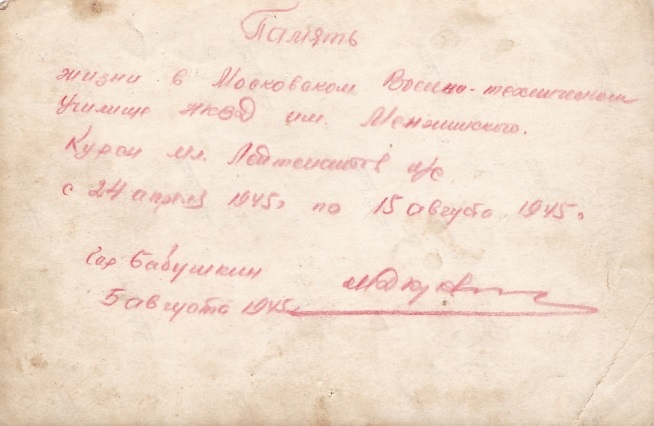 Память
жизни в Московском Военно-техническом
Училище НКВД им. Менжинского.
Курсы мл. Лейтенантов а/с
с 24 апреля 1945г по 15 августа 1945г
Бабушкин
5 августа 1945г